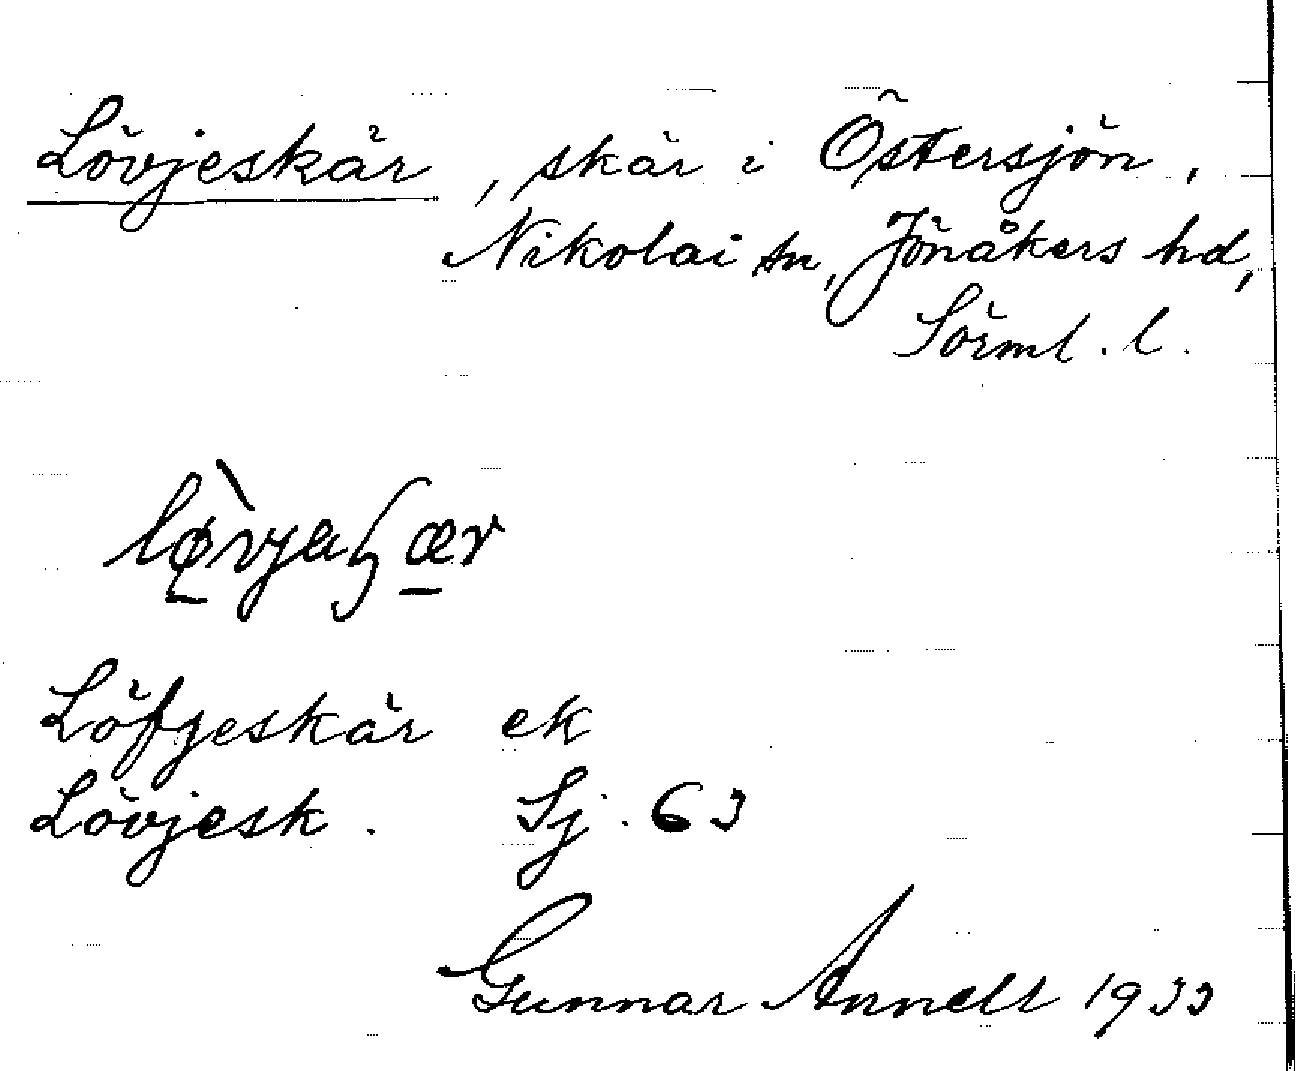 Lövjeskär, skär i Östersjön,
Nikolai sn, Jönåkers hd,
Sörml. l.
Löfjeskär ek
Lövjesk. Sj. 63
Gunnar Annell 1933